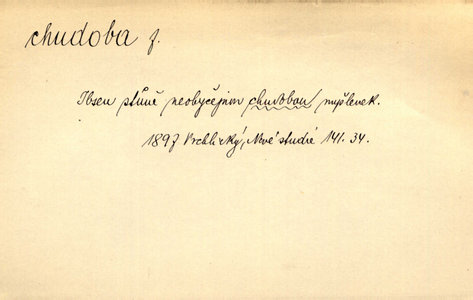 chudoba f.
Ibsen stůně neobyčejnou chudobou myšlenek.
1897 Vrchlický, Nové studie 141. 34.